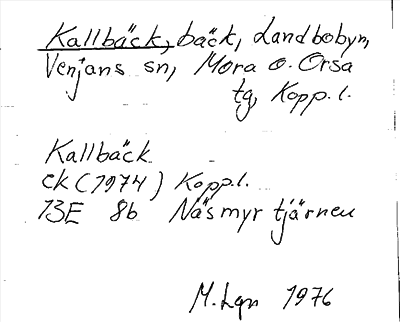 Kallbäck, bäck, Landbobyn,
Venjans sn, Mora o. Orsa
tg, Kopp. l.
Kallbäck
ek (1974) Kopp.l.
13E 8b Näsmyrtjärnen
M. Lgn 1976